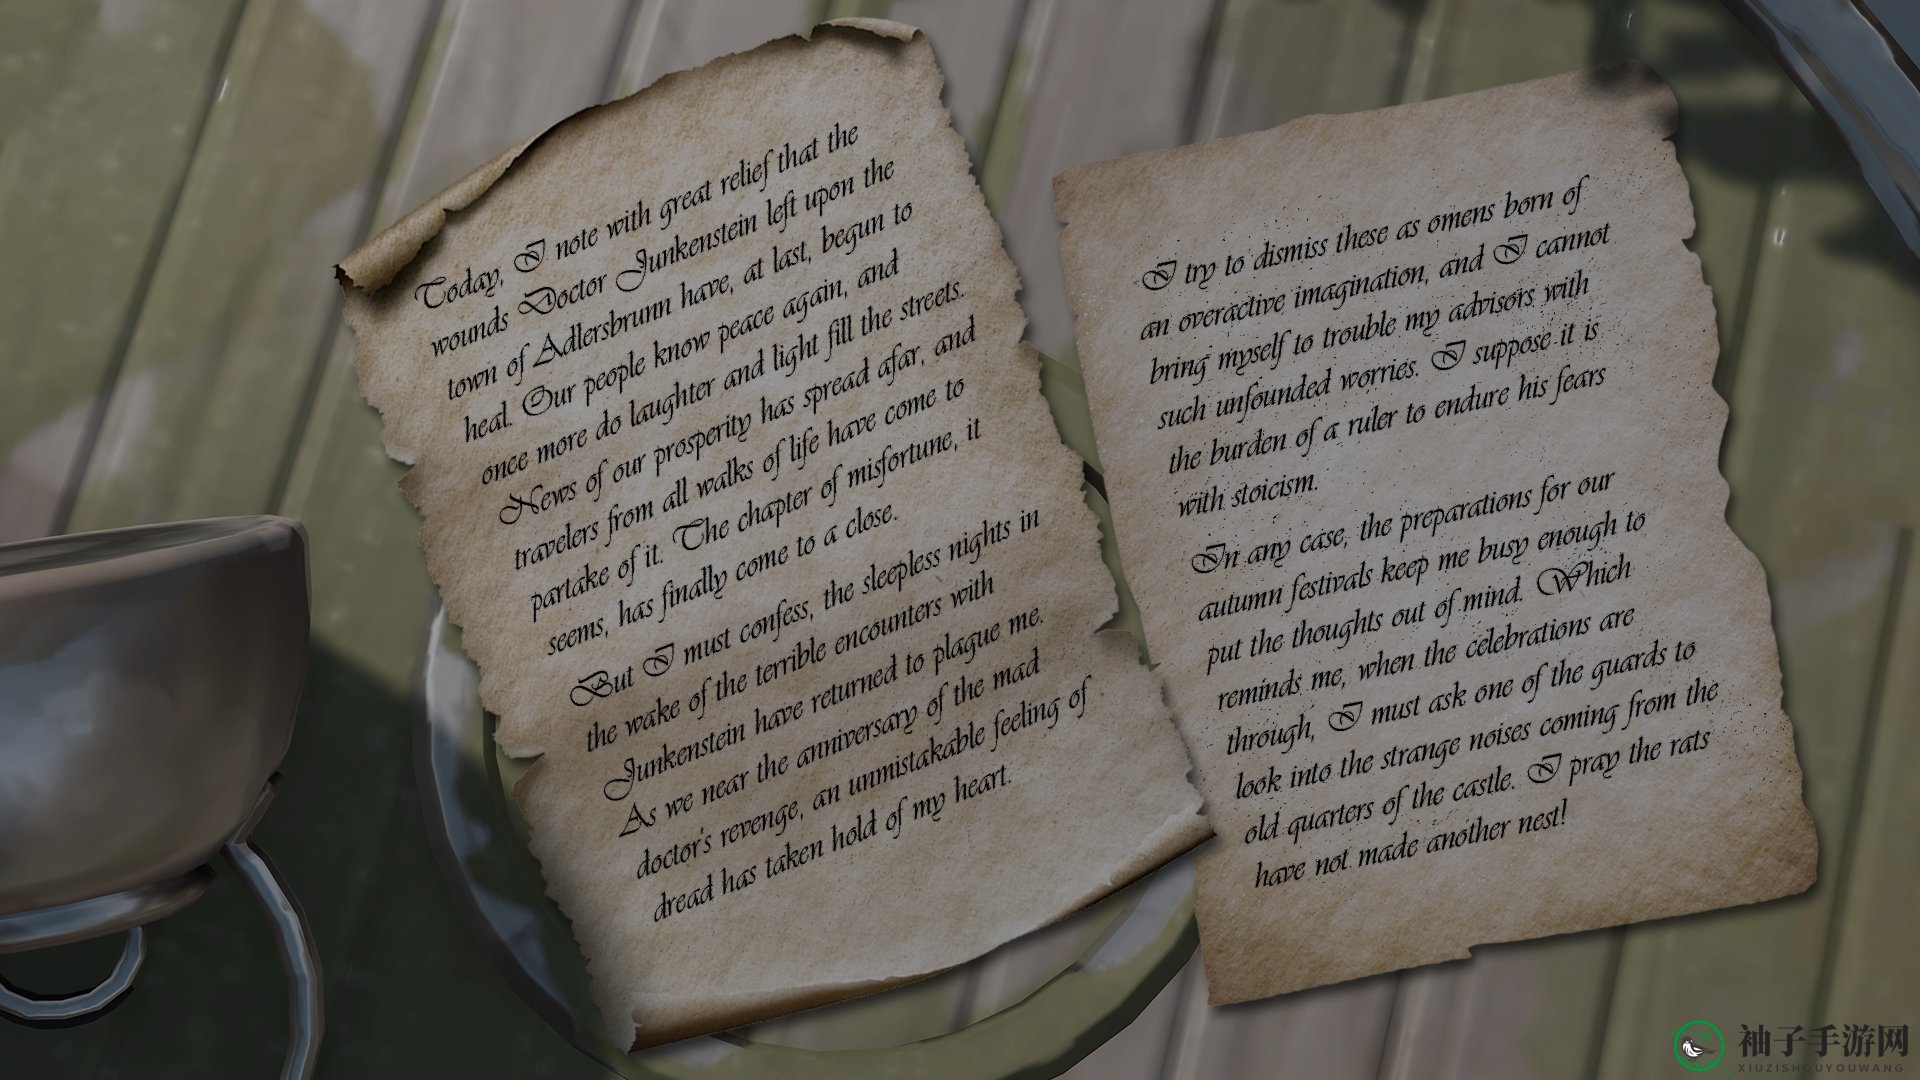 Today, I note with great relief that the
wounds Doctor Junkenstein left upon the
town of Adlersbrunn have, at last, begun to
heal. Our people know peace again, and
once more do laughter and light fill the streets.
News of our prosperity has spread afar, and
travelers from all walks of life have come to
partake of it. The chapter of misfortune, it
seems, has finally come to a close.
But I must confess, the sleepless nights in
the wake of the terrible encounters with
Junkenstein have returned to plague me.
As we near the anniversary of the mad
doctor's revenge, an unmistakable feeling of
dread has taken hold of my heart.
I try to dismiss these as omens born of
an overactive imagination, and I cannot
bring myself to trouble my advisors with
such unfounded worries. I suppose it is
the burden of a ruler to endure his fears
with stoicism.
In any case, the preparations for our
autumn festivals keep me busy enough to
put the thoughts out of mind. Which
reminds me, when the celebrations are
through, I must ask one of the guards to
look into the strange noises coming from the
old quarters of the castle. I pray the rats
have not made another nest!
袖子手游网
XIUZISHOUYOUWANG